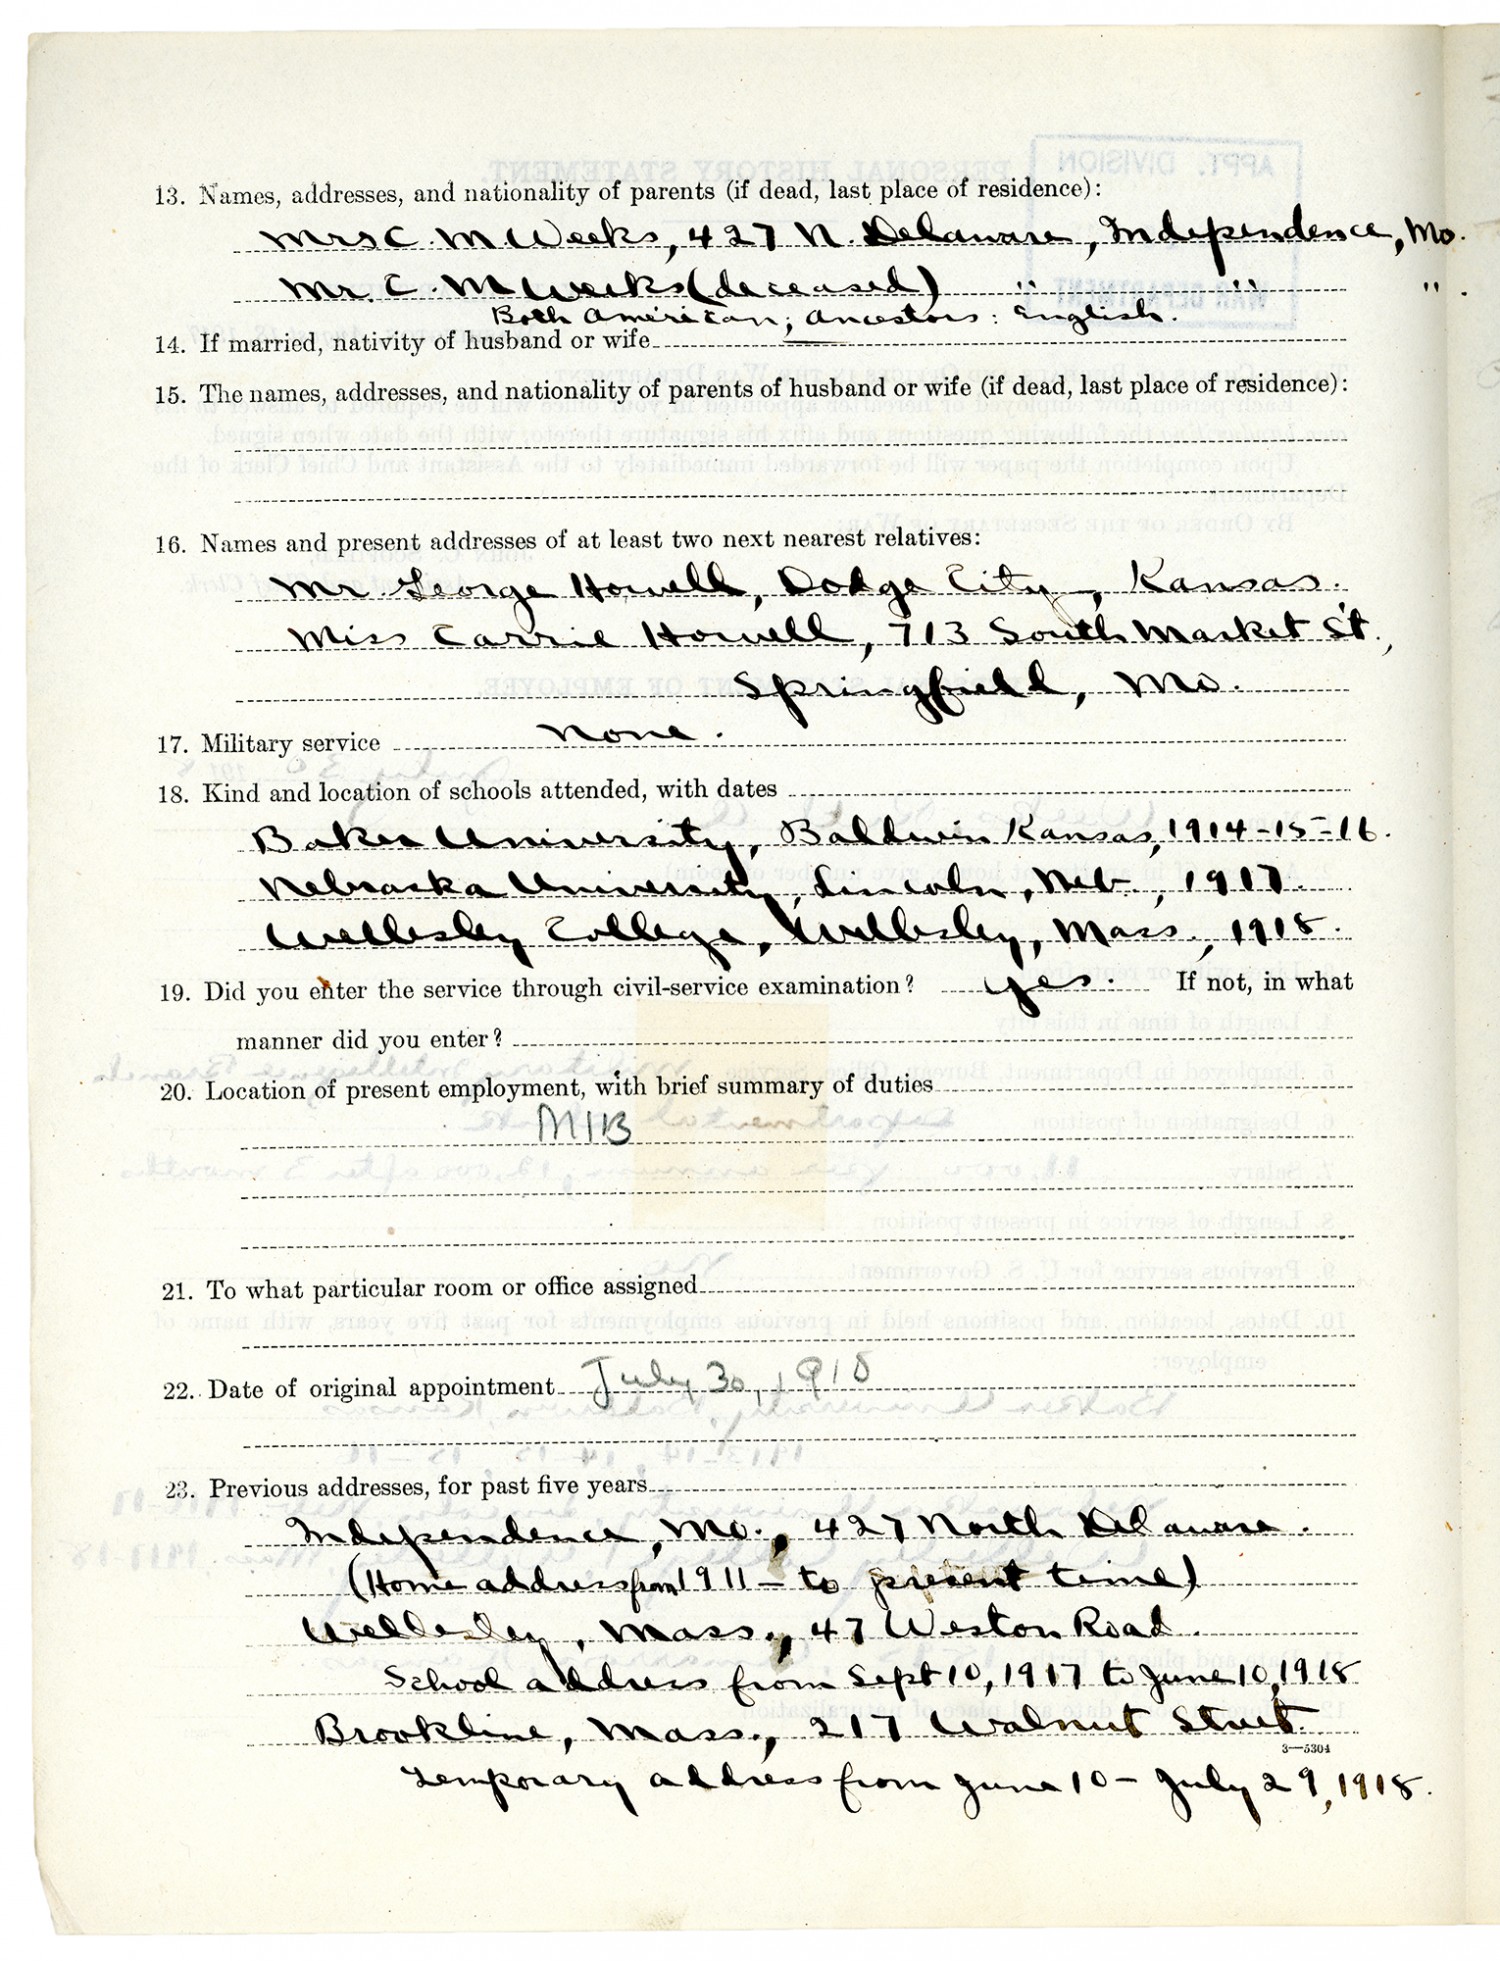 13. Names, addresses, and nationality of parents (if dead, last place of residence):
Mrs C. M Weeks, 427 N. Delaware, Independence, Mo.
Mr. C. M Weeks (deceased) " " " .
Both American; Ancestors: English.
14. If married, nativity of husband or wife
15. The names, addresses, and nationality of parents of husband or wife (if dead, last place of residence):
16. Names and present addresses of at least two next nearest relatives:
Mr. George Howell, Dodge City, Kansas.
Miss Carrie Howell, 713 South Market St.,
Springfield, Mo.
17. Military service None.
18. Kind and location of schools attended, with dates
Baker University, Baldwin Kansas, 1914-15-16.
Nebraska University, Lincoln, Neb., 1917.
Wellesley College, Wellesley, Mass., 1918.
19. Did you enter the service through civil-service examination? yes. If not, in what
manner did you enter?
20. Location of present employment, with brief summary of duties
MIB
21. To what particular room or office assigned
22. Date of original appointment July 30, 1918
23. Previous addresses, for past five years
Independence, Mo., 427 North Delaware.
(Home address from 1911 - to present time)
Wellesley, Mass., 47 Weston Road.
School address from Sept 10, 1917 to June 10, 1918
Brookline, Mass., 217 Walnut Street.
3—5304
Temporary address from June 10 - July 29, 1918.